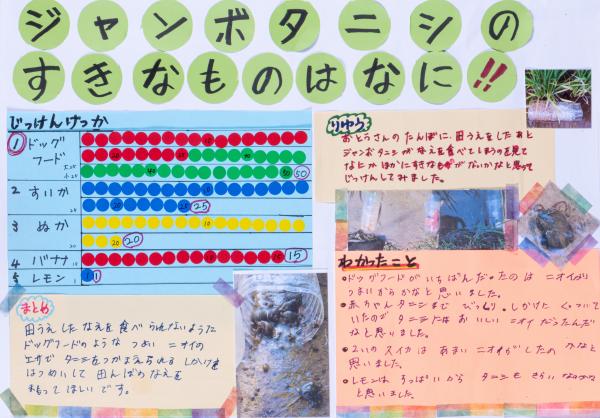 ジャンボタニシの
すきなものはなに!!
じっけんけっか
1 ドッグ
フード
50
2 すいか
25
3 ぬか
20
4 バナナ
15
5 レモン 1
りゆう
おとうさんのたんぼに、田うえをしたあと
ジャンボタニシがなえを食べてしまうのを見て
なにかほかにすきなものがないかなと思って
じっけんしてみました。
わかったこと
・ドッグフードがいちばんだったのは ニオイが
つよいからかなと思いました。
・赤ちゃんタニシまで びっくり。しかけに くっついて
いたので タニシには おいしい ニオイだったんだ
なと思いました。
・2いの スイカは あまい ニオイがしたの かなと
思いました。
・レモンは すっぱいから タニシも きらいなのかな
と思いました。
まとめ
田うえしたなえを食べられないように
ドッグフードのような つよい ニオイの
エサで タニシをつかまえられる しかけを
はつめいして 田んぼのなえを
まもってほしいです。